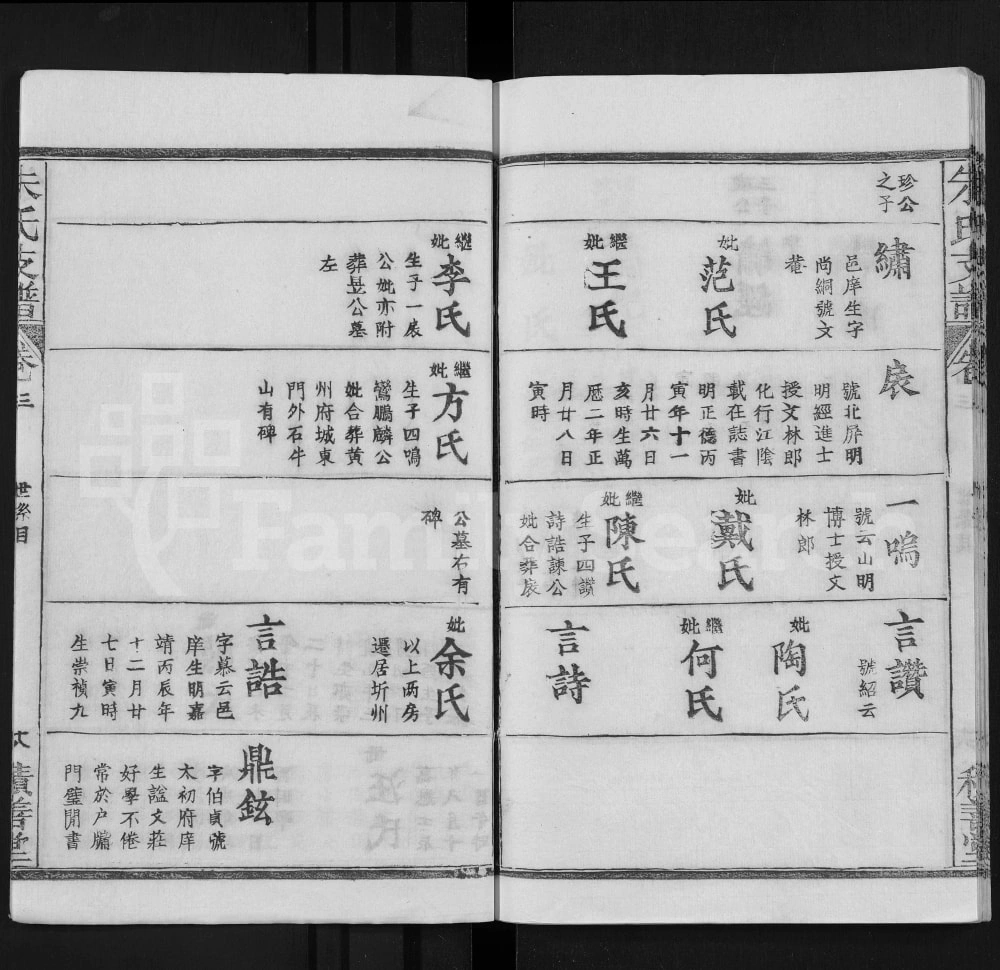 朱氏支譜
卷三
珍公
之子
繡
邑庠生字
尚絅號文
菴
妣
范氏
繼妣
王氏
扆
號北屏明
明經進士
授文林郎
化行江陰
載在誌書
明正德丙
寅年十一
月廿六日
亥時生萬
厯二年正
月廿八日
寅時
一鳴
號云山明
博士授文
林郎
妣
戴氏
繼妣
陳氏
生子四讚
詩誥諫公
妣合葬扆
言讚
號紹云
妣
陶氏
繼妣
何氏
言詩
繼妣
李氏
生子一扆
公妣亦附
葬昱公墓
左
繼妣
方氏
生子四鳴
鸞鵬麟公
妣合葬黃
州府城東
門外石牛
山有碑
公墓右有
碑
妣
余氏
以上两房
遷居圻州
言誥
字慕云邑
庠生明嘉
靖丙辰年
十二月廿
七日寅時
生崇禎九
鼎鉉
字伯貞號
太初府庠
生謚文莊
好學不倦
常於户牖
門璧閒書
朱氏支譜
卷三
世系目
積善堂
FamilySearch